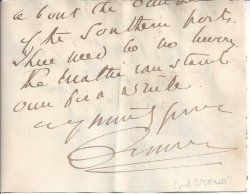 about the
of the Southern ports.
There need be no hurry
the matter can stand
over for a while.
Cromer
Lord Cromer